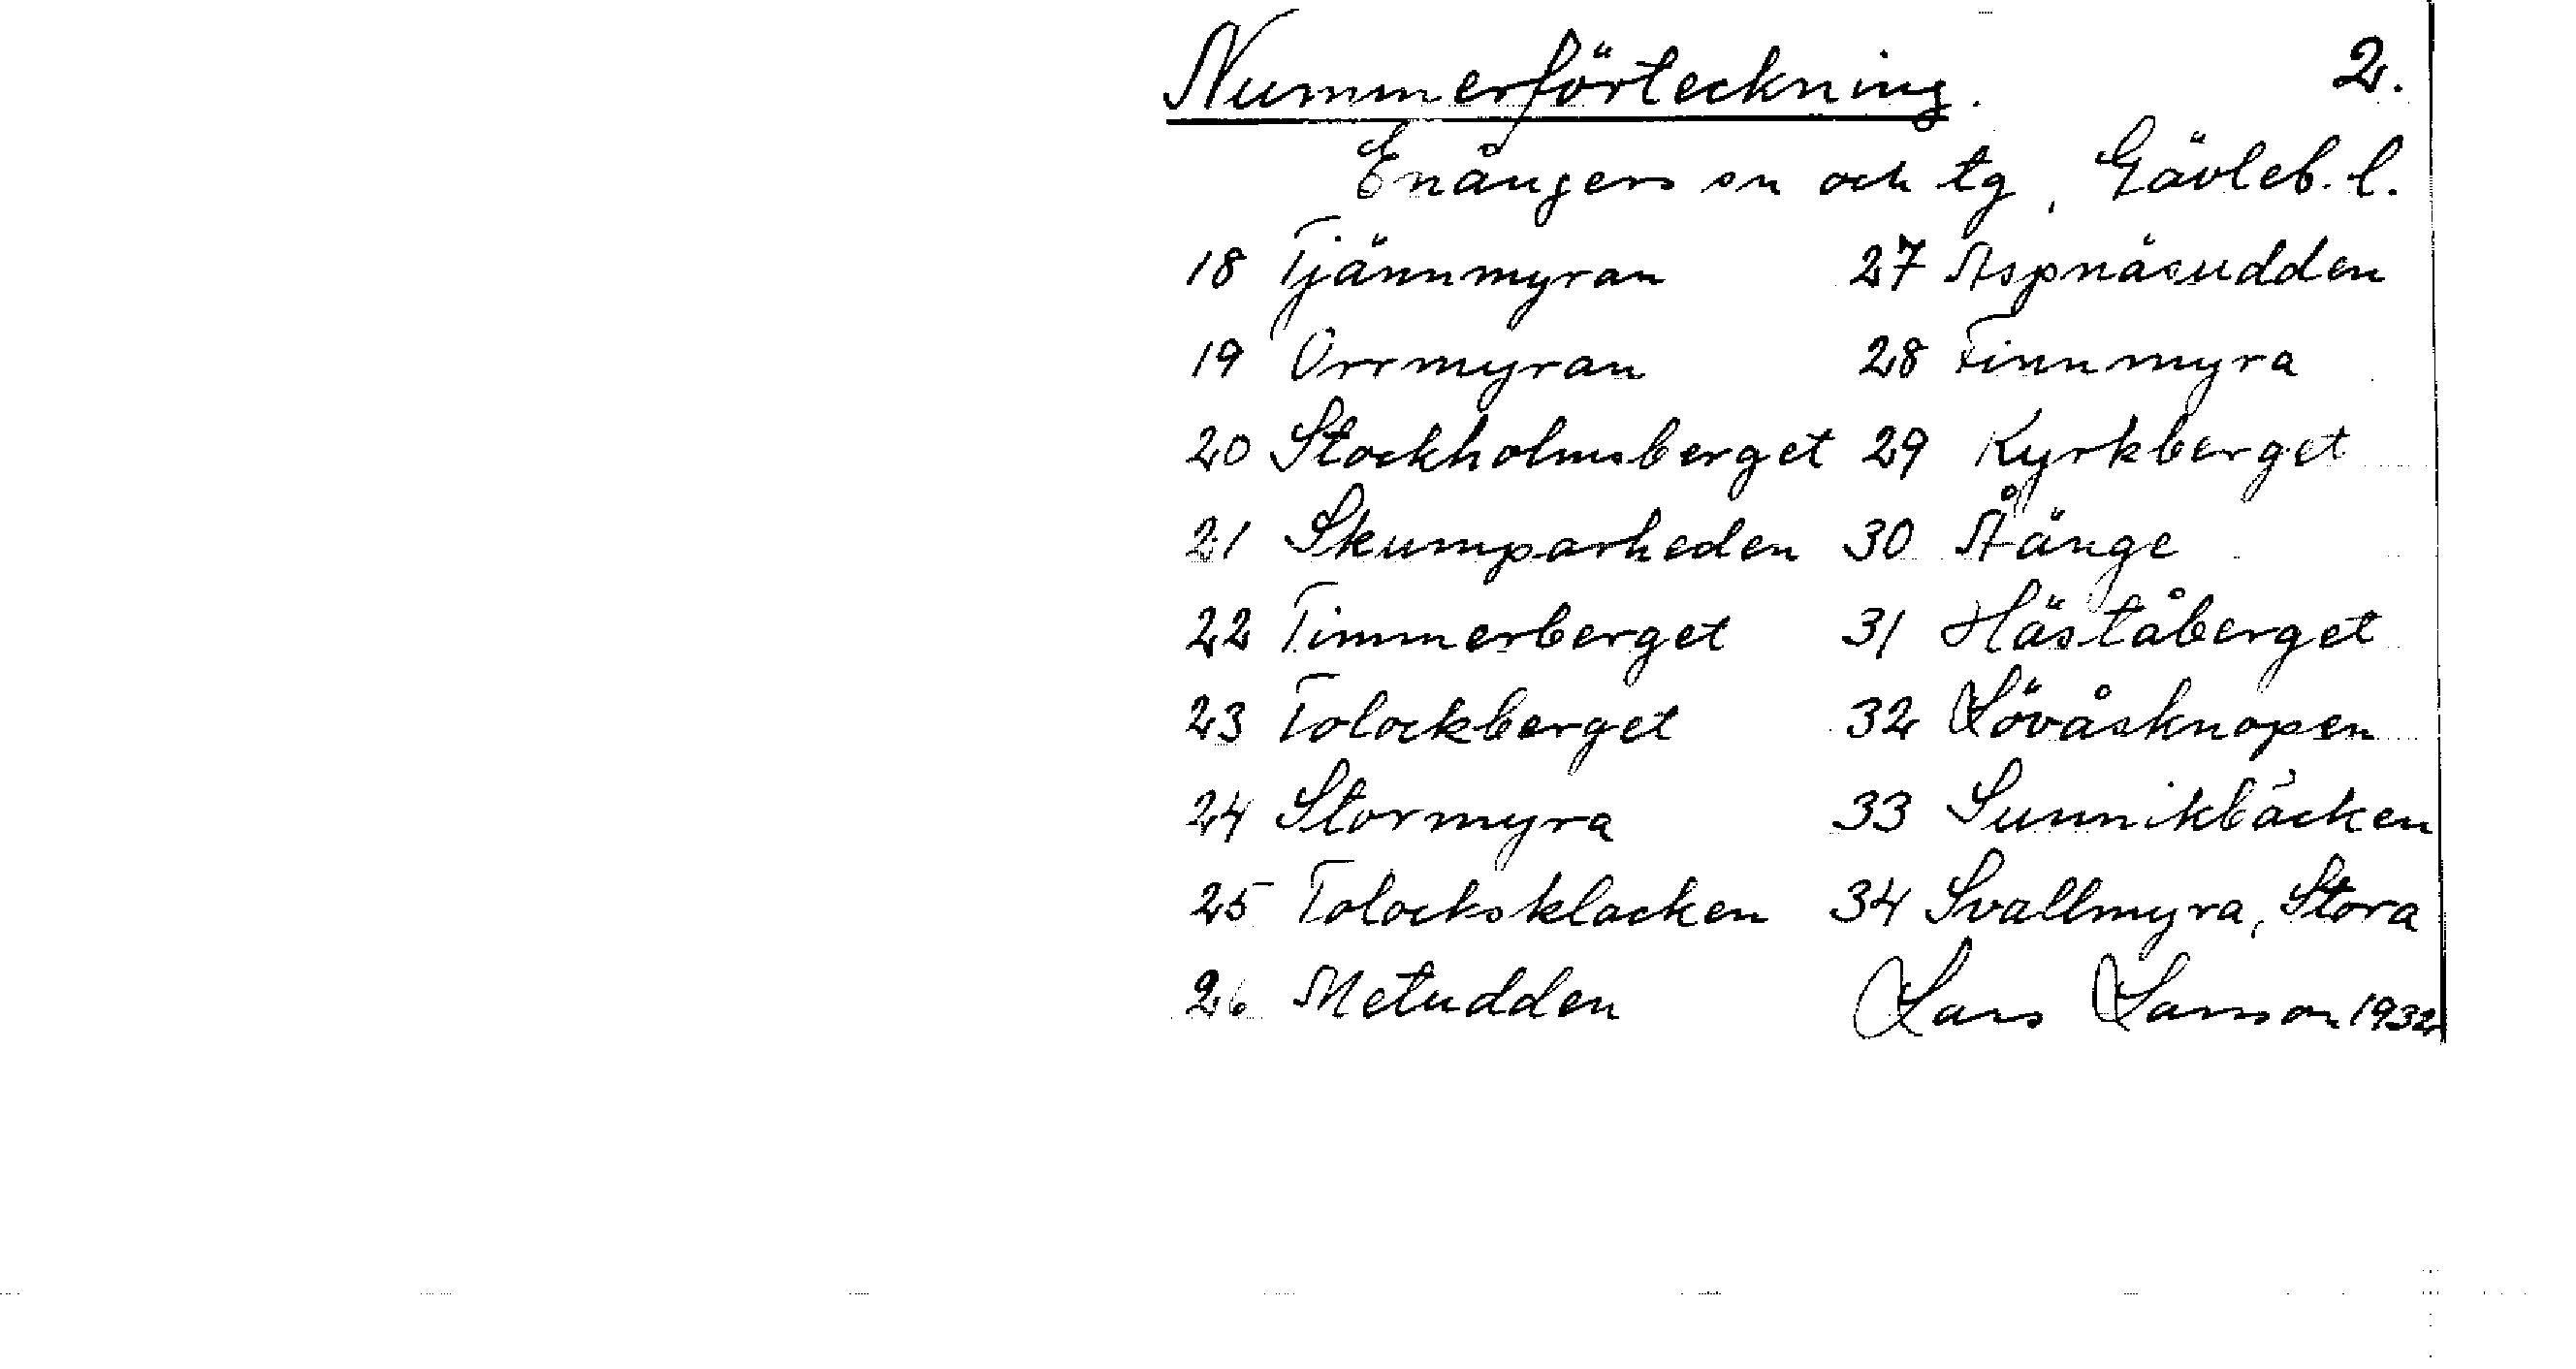 Nummerförteckning. 2.
Enångers sn och tg, Gävleb. l.
18 Tjännmyran 27 Aspnäsudden
19 Orrmyran 28 Finnmyra
20 Stockholmsberget 29 Kyrkberget
21 Skumparheden 30 Åänge
22 Timmerberget 31 Häståberget
23 Tolockberget 32 Lövåsknopen
24 Stormyra 33 Sunnikbäcken
25 Tolocksklacken 34 Svallmyra, Stora
26 Metudden Lars Larsson 1932